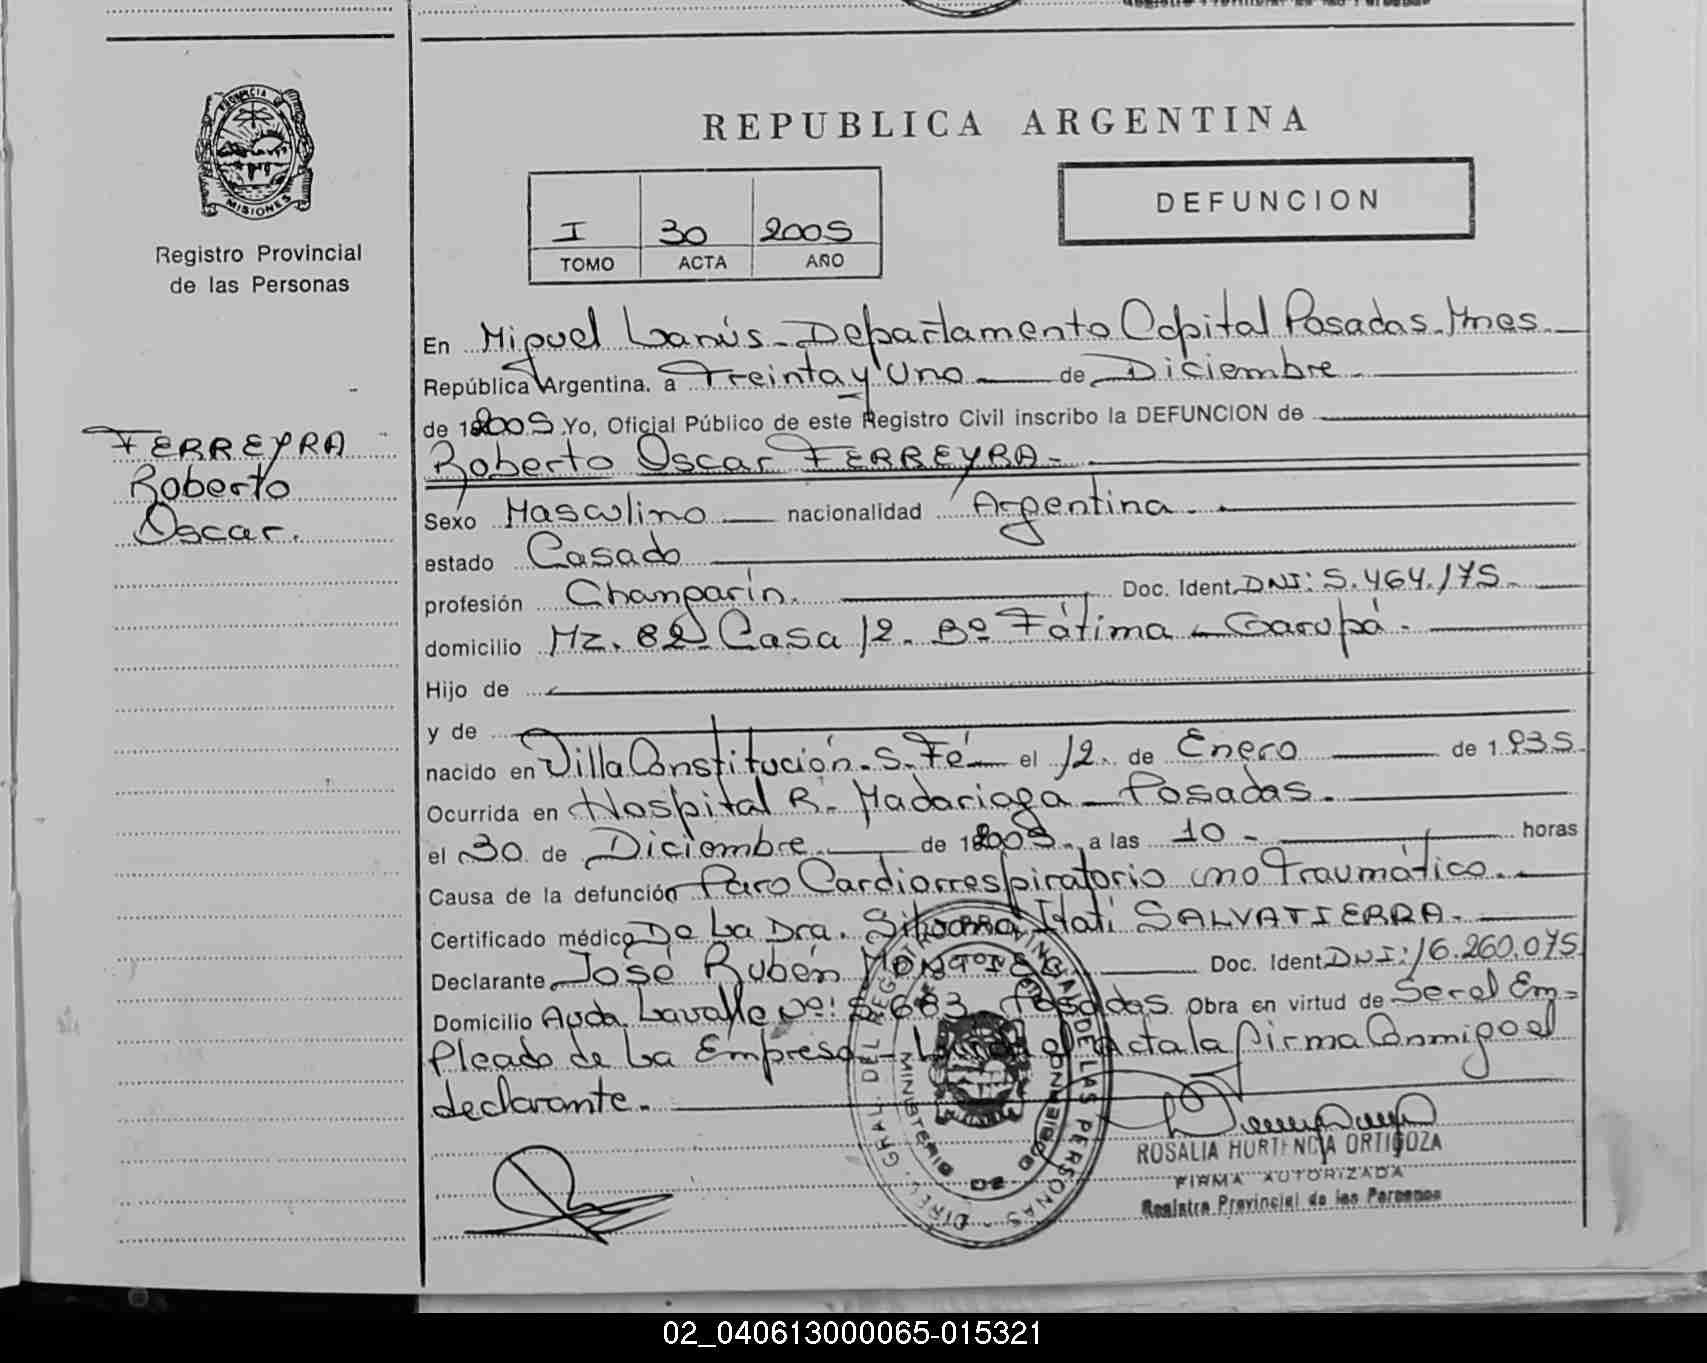 PROVINCIA DE
MISIONES
Registro Provincial
de las Personas
FERREYRA
Roberto
Oscar.
REPUBLICA ARGENTINA
I 30 2005
TOMO ACTA AÑO
DEFUNCION
En Miguel Lanús - Departamento Capital Posadas - Mnes
República Argentina. a Treinta y Uno de Diciembre
de 2005 Yo, Oficial Público de este Registro Civil inscribo la DEFUNCION de
Roberto Oscar FERREYRA -
Sexo Masculino nacionalidad Argentina.
estado Casado
profesión Changarín. Doc. Ident. DNI: 5.464.175
domicilio Mz. 82 Casa 12. Bº Fátima - Garupá -
Hijo de
y de
nacido en Villa Constitución - S. Fé el 12 de Enero de 1.935
Ocurrida en Hospital R. Madariaga - Posadas.
el 30 de Diciembre de 2005 a las 10 - horas
Causa de la defunción Paro Cardiorrespiratorio no Traumático.
Certificado médico De La Dra. Itatí SALVATIERRA -
Declarante José Rubén Doc. Ident DNI: 16.260.075
Domicilio Avda. Lavalle Nº: Posadas. Obra en virtud de Ser el Em=
pleado de La Empresa - el acta la firma Conmigo el
declarante.
DIREC. GRAL. DEL REGISTRO PROVINCIAL DE LAS PERSONAS
MINISTERIO DE GOBIERNO
ROSALIA HORTENCIA ORTIGOZA
FIRMA AUTORIZADA
Registro Provincial de las Personas
02_040613000065-015321